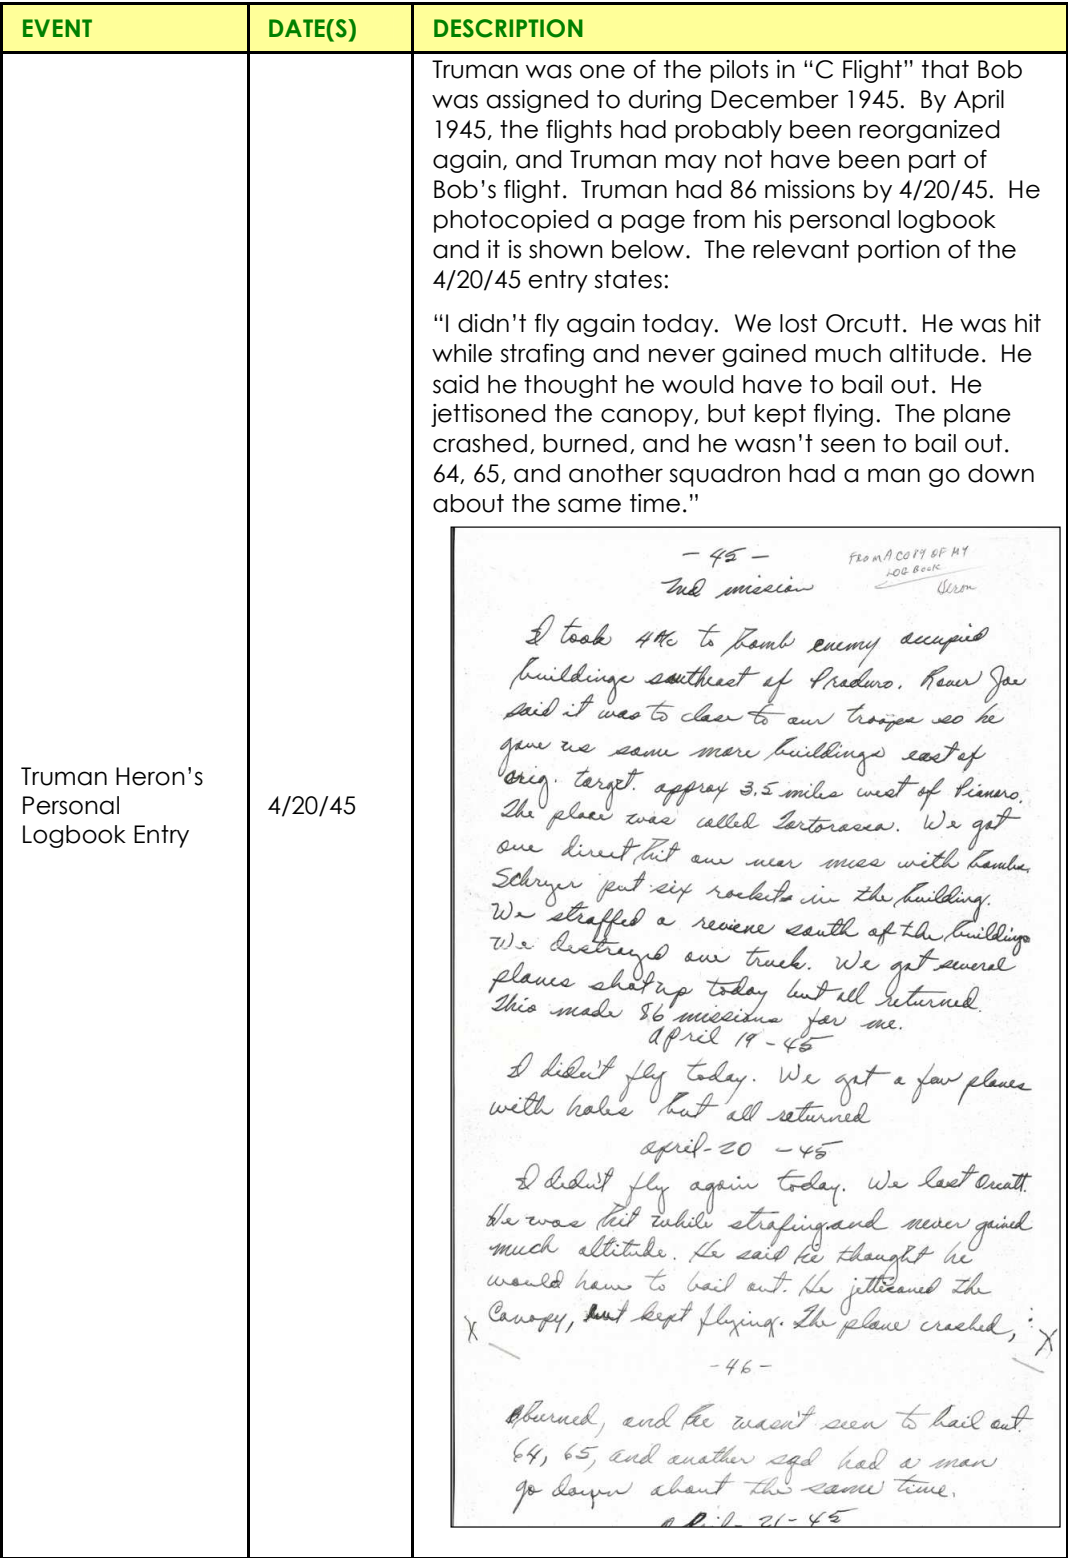 EVENT
DATE(S)
DESCRIPTION
Truman Heron’s
Personal
Logbook Entry
4/20/45
Truman was one of the pilots in “C Flight” that Bob
was assigned to during December 1945.  By April
1945, the flights had probably been reorganized
again, and Truman may not have been part of
Bob’s flight.  Truman had 86 missions by 4/20/45.  He
photocopied a page from his personal logbook
and it is shown below.  The relevant portion of the
4/20/45 entry states:
“I didn’t fly again today.  We lost Orcutt.  He was hit
while strafing and never gained much altitude.  He
said he thought he would have to bail out.  He
jettisoned the canopy, but kept flying.  The plane
crashed, burned, and he wasn’t seen to bail out.
64, 65, and another squadron had a man go down
about the same time.”
- 45 -
FROM A COPY OF MY
LOG BOOK
Heron
2nd mission
I took 4 to bomb enemy occupied
buildings southeast of Praduro. Rover Joe
said it was to close to our troops so he
gave us some more buildings east of
orig. target. approx 3.5 miles west of Pianoro.
The place was called We got
one direct hit one near miss with bombs.
Schryer put six rockets in the building.
We straffed a reviene south of the buildings
We destroyed one truck. We got several
planes shot up today but all returned.
This made 86 missions for me.
April 19 - 45
I didn't fly today. We got a few planes
with holes but all returned
april - 20 - 45
I didn't fly again today. We lost Orcutt.
He was hit while strafing and never gained
much altitude. He said he thought he
would have to bail out. He jettisoned the
Canopy, but kept flying. The plane crashed,
X X
- 46 -
burned, and he wasn't seen to bail out.
64, 65, and another sqd had a man
go down about the same time.
April - 21 - 45